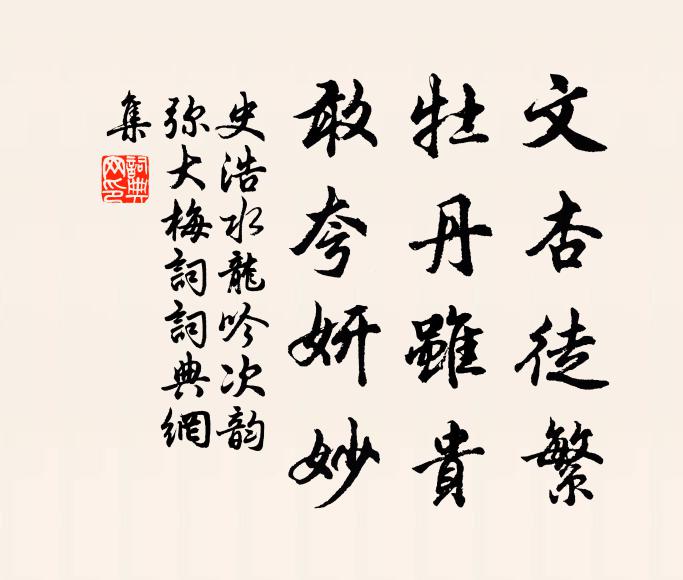 文杏徒繁
牡丹雖貴
敢夸妍妙
史浩水龍吟次韵
弥大梅詞詞典網
集
詞典
网印